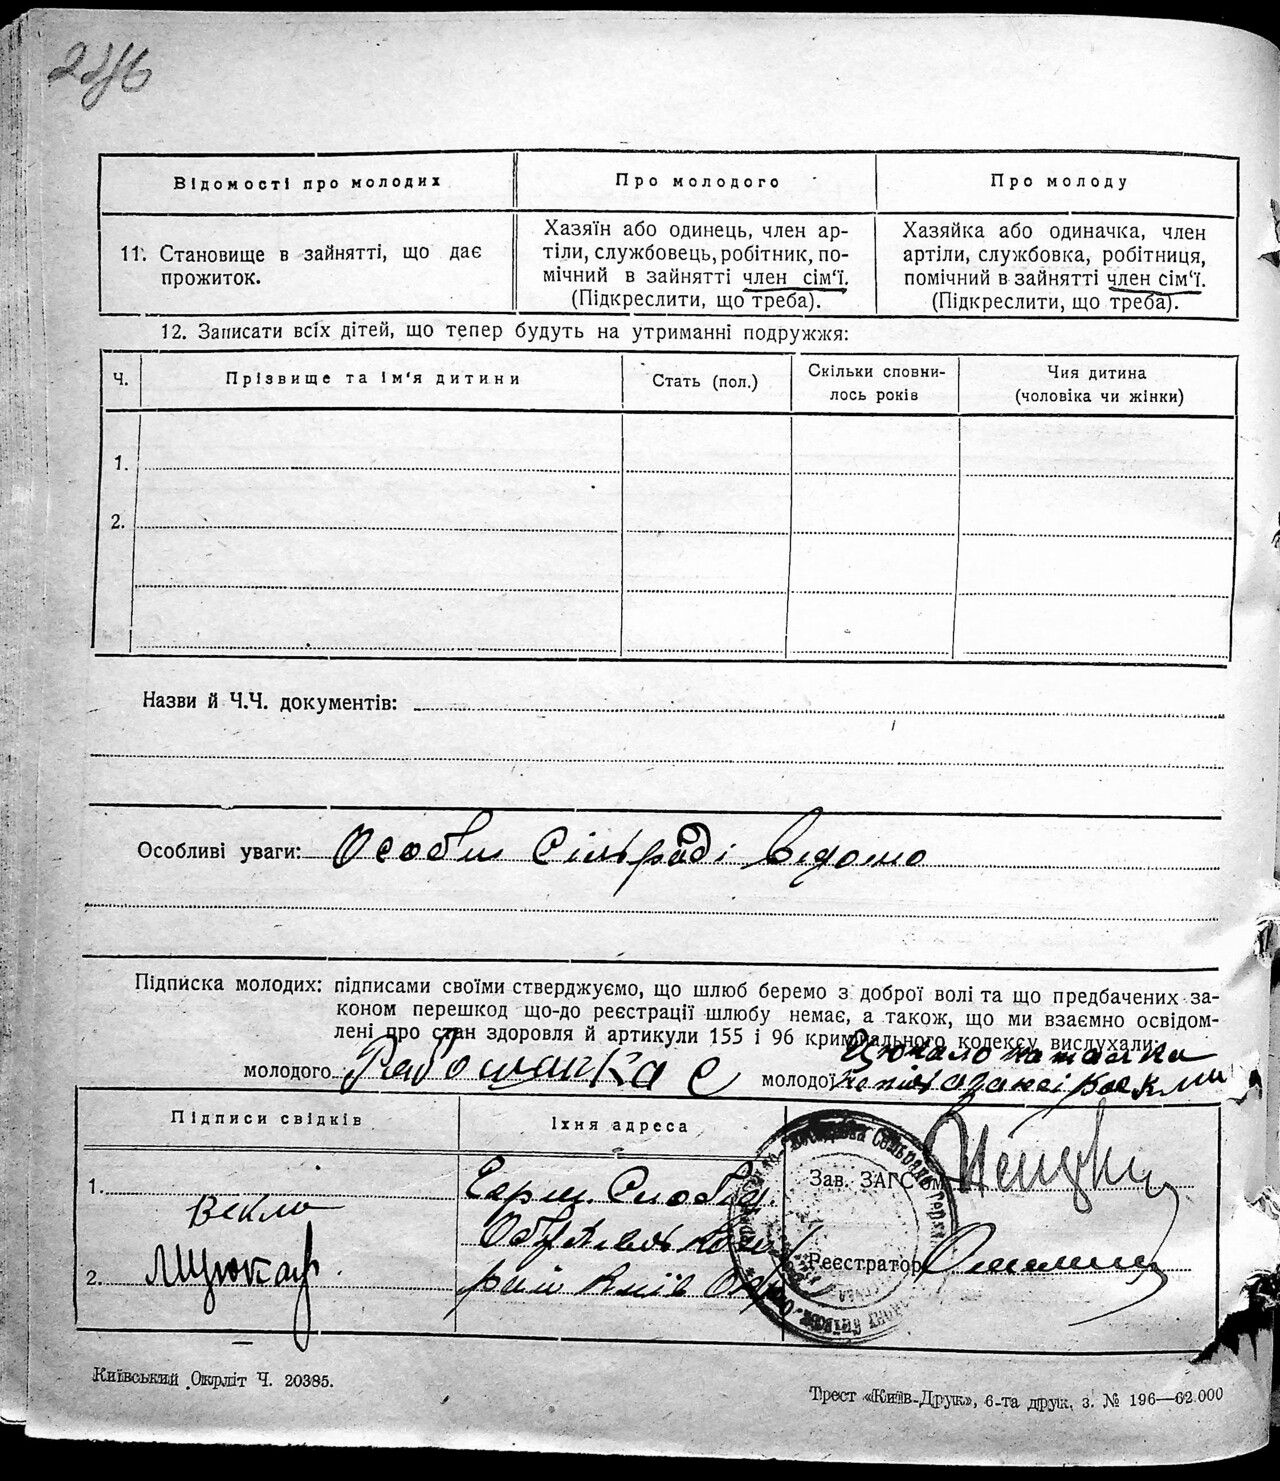 Відомості про молодих
Про молодого
Про молоду
11. Становище в зайнятті, що дає
прожиток.
Хазяїн або одинець, член ар-
тіли, службовець, робітник, по-
мічний в зайнятті член сім'ї.
(Підкреслити, що треба).
Хазяйка або одиначка, член
артіли, службовка, робітниця,
помічний в зайнятті член сім'ї.
(Підкреслити, що треба).
12. Записати всіх дітей, що тепер будуть на утриманні подружжя:
Ч.
Прізвище та ім'я дитини
Стать (пол.)
Скільки сповни-
лось років
Чия дитина
(чоловіка чи жінки)
1.
2.
Назви й Ч.Ч. документів:
Особливі уваги: Особи Сільраді відомо
Підписка молодих: підписами своїми стверджуємо, що шлюб беремо з доброї волі та що предбачених за-
коном перешкод що-до реєстрації шлюбу немає, а також, що ми взаємно освідом-
лені про стан здоровля й артикули 155 і 96 кримінального кодексу вислухали:
молодого
молодої
Підписи свідків
Їхня адреса
1. Векла
2.
Зав. ЗАГС'ом
Реєстратор
Київський Окрліт Ч. 20385.
Трест «Київ-Друк», 6-та друк. з. № 196—62.000